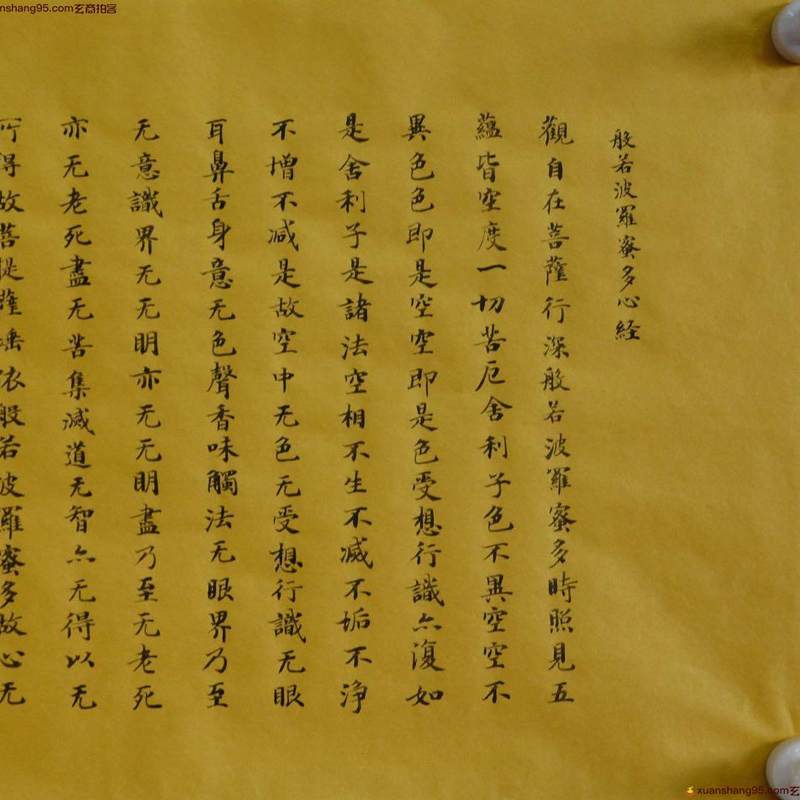 般若波羅蜜多心経
觀自在菩薩行深般若波羅蜜多時照見五
蘊皆空度一切苦厄舍利子色不異空空不
異色色即是空空即是色受想行識亦復如
是舍利子是諸法空相不生不滅不垢不淨
不增不减是故空中无色无受想行識无眼
耳鼻舌身意无色聲香味觸法无眼界乃至
无意識界无无明亦无无明盡乃至无老死
亦无老死盡无苦集滅道无智亦无得以无
所得故菩提薩埵依般若波羅蜜多故心无
anshang95.com玄商拍客
xuanshang95.com玄